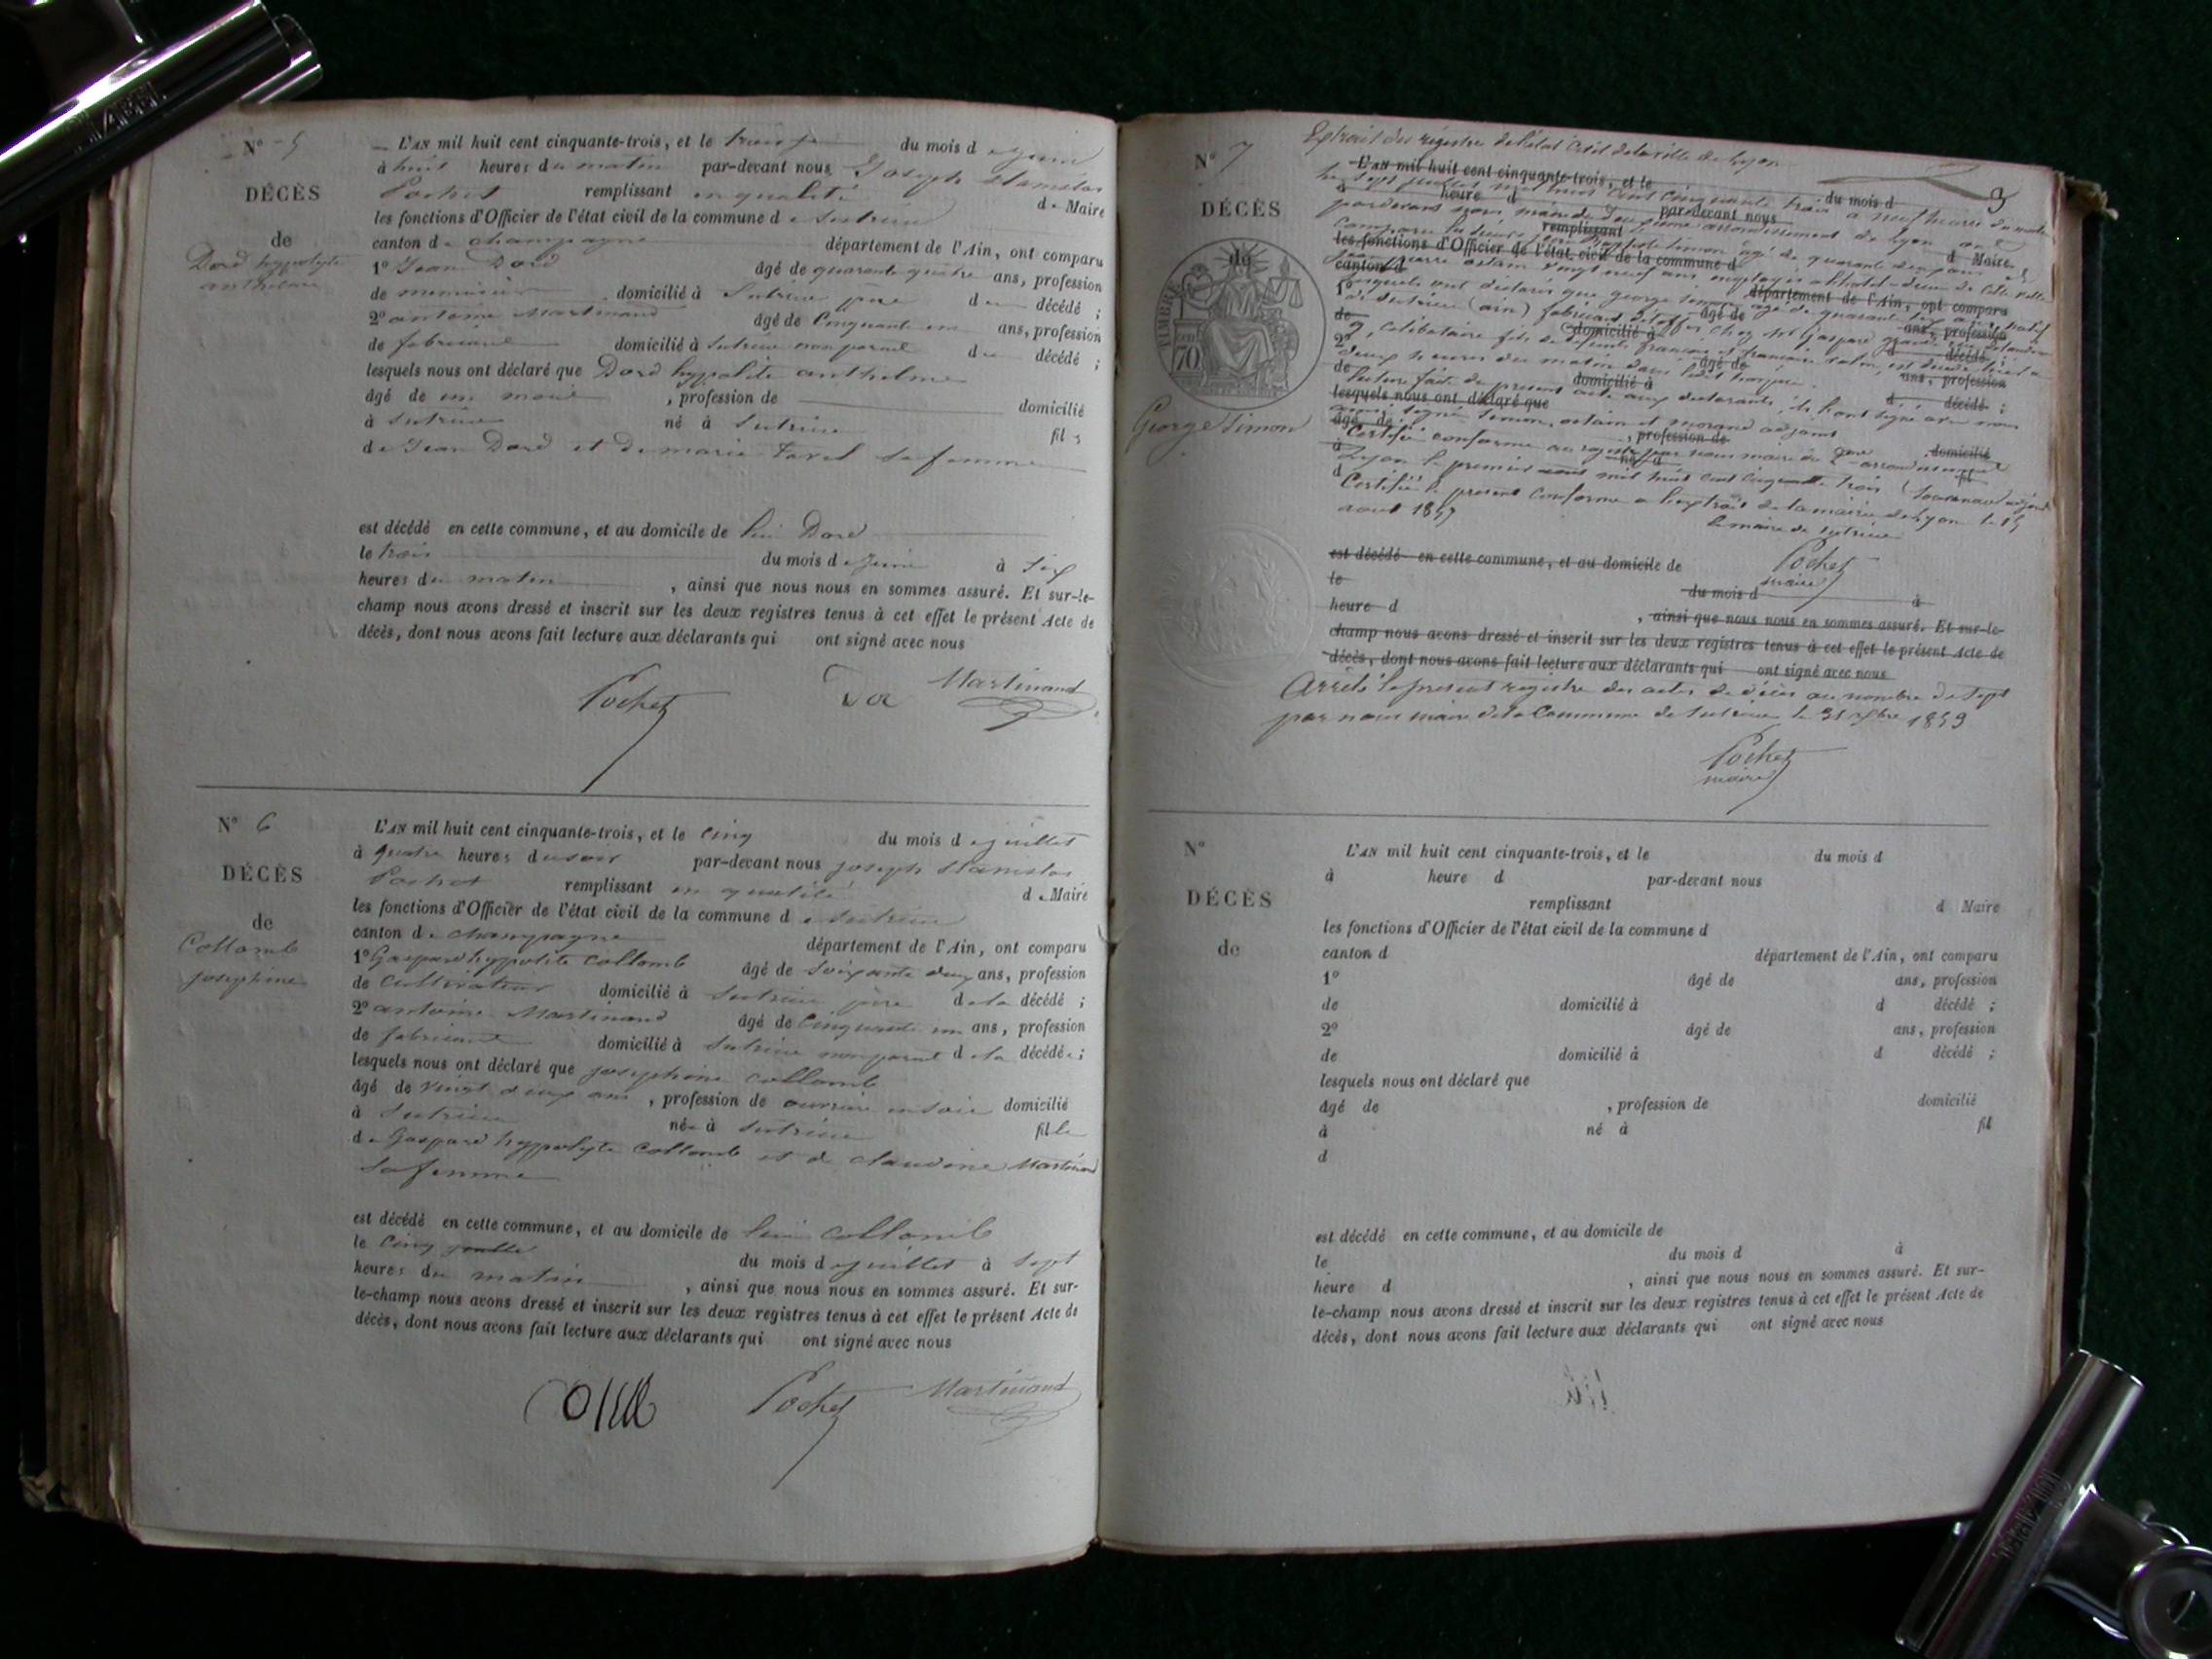 N° 5
DÉCÈS
de
Dord hypolyte
anthelme
L'AN mil huit cent cinquante-trois, et le trois du mois de juin
à huit heures du matin par-devant nous Joseph Stanislas
Pochet remplissant en qualité de Maire
les fonctions d'Officier de l'état civil de la commune de Sutrieu
canton de champagne département de l'Ain, ont comparu
1° Jean Dord âgé de quarante quatre ans, profession
de menuisier domicilié à Sutrieu père du décédé ;
2° antoine Martinand âgé de Cinquante un ans, profession
de fabricant domicilié à Sutrieu non parent du décédé ;
lesquels nous ont déclaré que Dord hypolite anthelme
âgé de un mois , profession de domicilié
à Sutrieu né à Sutrieu fils
de Jean Dord et de marie Favel sa femme
est décédé en cette commune, et au domicile de lui Dord
le trois du mois de juin à Six
heures du matin , ainsi que nous nous en sommes assuré. Et sur-le-
champ nous avons dressé et inscrit sur les deux registres tenus à cet effet le présent Acte de
décès, dont nous avons fait lecture aux déclarants qui ont signé avec nous
Pochet Martinand
N° 6
DÉCÈS
de
Collomb
josephine
L'AN mil huit cent cinquante-trois, et le cinq du mois de juillet
à quatre heures du soir par-devant nous joseph Stanislas
Pochet remplissant en qualité de Maire
les fonctions d'Officier de l'état civil de la commune de Sutrieu
canton de champagne département de l'Ain, ont comparu
1° Gaspard hypolite Collomb âgé de soixante deux ans, profession
de Cultivateur domicilié à Sutrieu père de la décédé ;
2° antoine Martinand âgé de Cinquante un ans, profession
de fabricant domicilié à Sutrieu non parent de la décédée ;
lesquels nous ont déclaré que josephine collomb
âgé de vingt deux ans , profession de ouvrière en soie domicilié
à Sutrieu née à Sutrieu fille
de Gaspard hypolyte Collomb et de claudine Martinand
sa femme
est décédé en cette commune, et au domicile de lui collomb
le cinq du mois de juillet à sept
heures du matin , ainsi que nous nous en sommes assuré. Et sur-
le-champ nous avons dressé et inscrit sur les deux registres tenus à cet effet le présent Acte de
décès, dont nous avons fait lecture aux déclarants qui ont signé avec nous
Pochet Martinand
N° 7
DÉCÈS
de
TIMBRE
70
George Simon
3
Extrait des registre de l'état civil de la ville de Lyon
L'AN mil huit cent cinquante-trois, et le du mois d
le sept juillet mil huit cent cinquante trois à neuf heures du matin
heure d par-devant nous
pardevant nous maire du deuxième arrondissement de Lyon ont
remplissant d Maire
les fonctions d'Officier de l'état civil de la commune d
canton d
département de l'Ain, ont comparu
lesquels ont déclaré que george Simon âgé de quarante
de Sutrieu (ain) fabricant chez Mr Gaspard
1° âgé de ans, profession
de domicilié à d décédé ;
célibataire fils de défunts françois et françoise
2° âgé de ans, profession
deux heures du matin dans
de domicilié à d décédé ;
lecture faite du present acte aux déclarants, ils l'ont signé avec nous
lesquels nous ont déclaré que
signé Simon, et morand adjoint
âgé de , profession de domicilié
Certifié conforme au registre par nous maire du 2me arrondissement
à né à fil
Lyon le premier aout mil huit cent cinquante trois
d
Certifié le present conforme a l'extrait de la mairie de Lyon le 15
aout 1853 le maire de sutrieu
est décédé en cette commune, et au domicile de Pochet
le maire
du mois d à
heure d , ainsi que nous nous en sommes assuré. Et sur-le-
champ nous avons dressé et inscrit sur les deux registres tenus à cet effet le présent Acte de
décès, dont nous avons fait lecture aux déclarants qui ont signé avec nous
Arrêté le present registre des actes de décès au nombre de sept
par nous maire de la Commune de Sutrieu le 31 Xbre 1853
Pochet
maire
N°
DÉCÈS
de
L'AN mil huit cent cinquante-trois, et le du mois d
à heure d par-devant nous
remplissant d Maire
les fonctions d'Officier de l'état civil de la commune d
canton d département de l'Ain, ont comparu
1° âgé de ans, profession
de domicilié à d décédé ;
2° âgé de ans, profession
de domicilié à d décédé ;
lesquels nous ont déclaré que
âgé de , profession de domicilié
à né à fil
d
est décédé en cette commune, et au domicile de
le du mois d à
heure d , ainsi que nous nous en sommes assuré. Et sur-
le-champ nous avons dressé et inscrit sur les deux registres tenus à cet effet le présent Acte de
décès, dont nous avons fait lecture aux déclarants qui ont signé avec nous